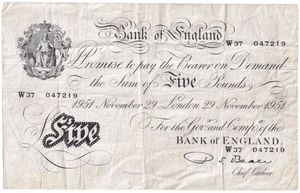 Bank of England
W37 047219
I Promise to pay the Bearer on Demand
the Sum of Five Pounds
W37 047219
1951 November 29 London 29 November 1951
For the Govr. and Compa. of the
BANK OF ENGLAND
W37 047219
Five
P S Beale
Chief Cashier